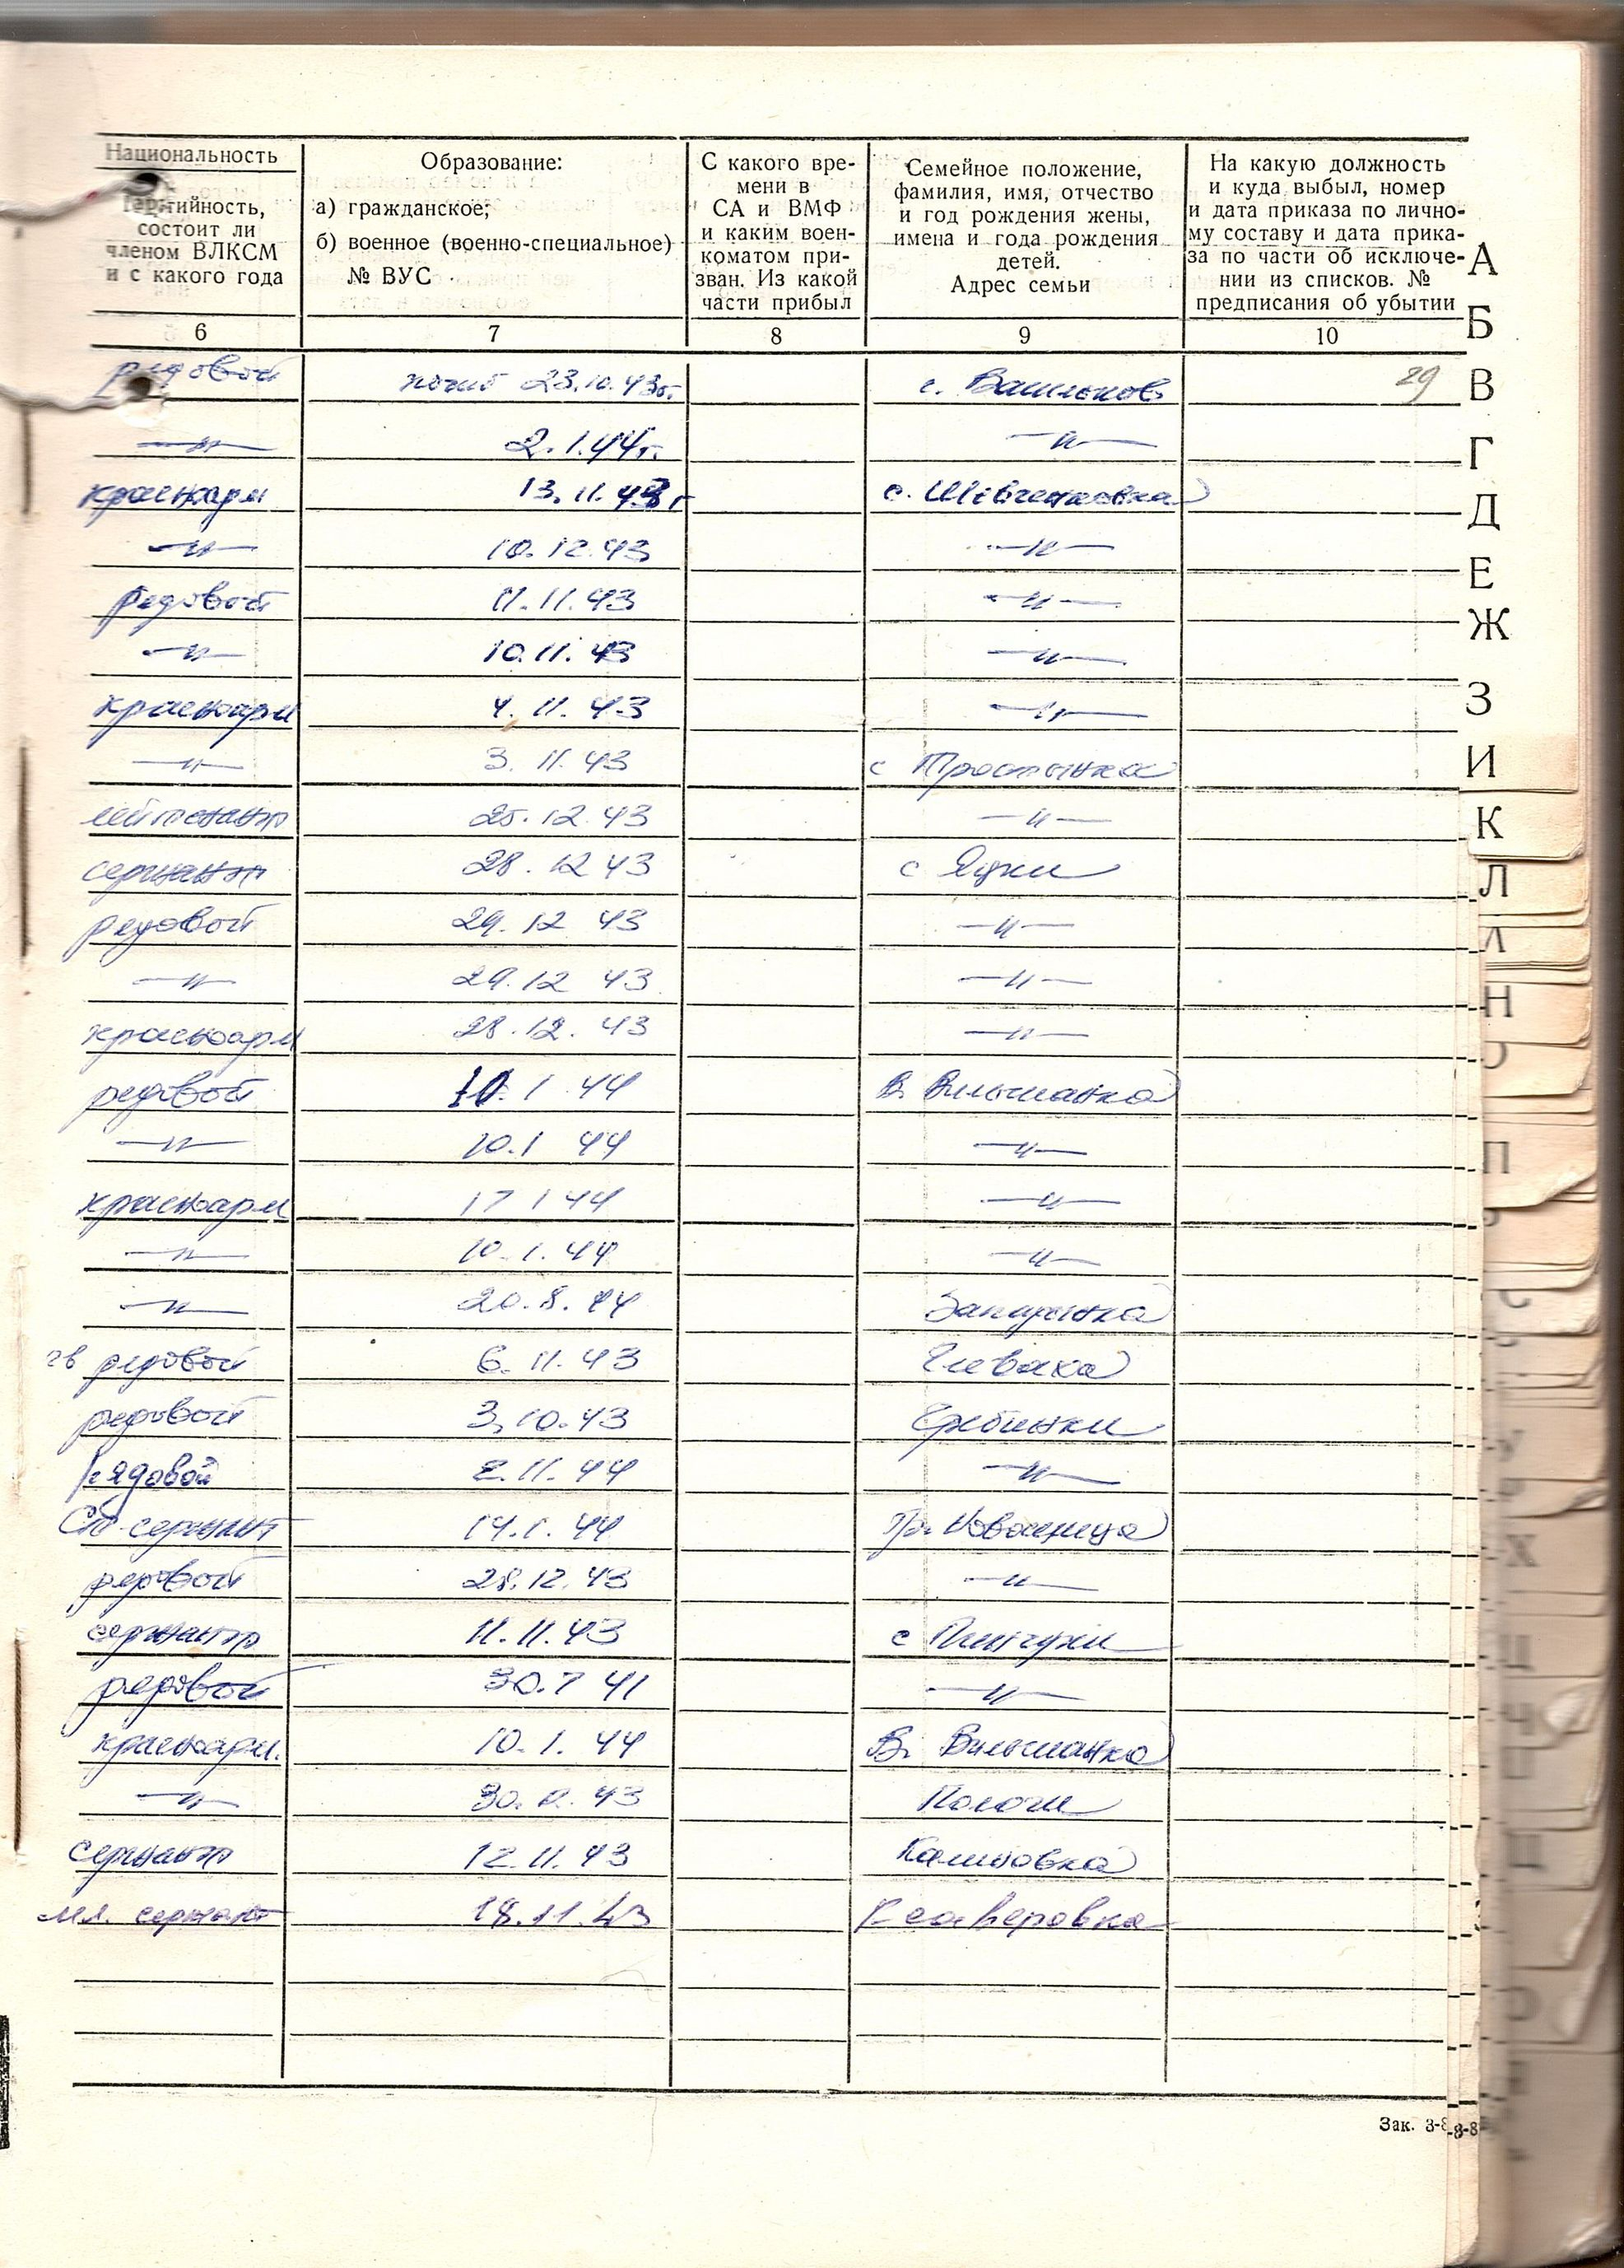 Национальность
Партийность,
состоит ли
членом ВЛКСМ
и с какого года
Образование:
а) гражданское;
б) военное (военно-специальное)
№ ВУС
С какого вре-
мени в
СА и ВМФ
и каким воен-
коматом при-
зван. Из какой
части прибыл
Семейное положение,
фамилия, имя, отчество
и год рождения жены,
имена и года рождения
детей.
Адрес семьи
На какую должность
и куда выбыл, номер
и дата приказа по лично-
му составу и дата прика-
за по части об исключе-
нии из списков. №
предписания об убытии
6 7 8 9 10
рядовой погиб 23.10.43г. с. Васильков 29
—"— 2.1.44г. —"—
красноарм 13.11.43г с. Шевченковка
—"— 10.12.43 —"—
рядовой 11.11.43 —"—
—"— 10.11.43 —"—
красноарм 4.11.43 —"—
—"— 3.11.43 с Тростынка
лейтенант 25.12.43 —"—
сержант 28.12 43 с Яцки
рядовой 29.12 43 —"—
—"— 29.12 43 —"—
красноарм 28.12.43 —"—
рядовой 10.1 44 В. Вильшанка
—"— 10.1 44 —"—
красноарм 17 1 44 —"—
—"— 10.1.44 —"—
—"— 20.8.44
гв рядовой 6.11.43 Глеваха
рядовой 3.10.43 Гребинки
рядовой 2.11.44 —"—
Ст сержант 14.1.44
рядовой 28.12.43 —"—
сержант 11.11.43 с Пинчуки
рядовой 30.7 41 —"—
красноарм. 10.1.44 В. Вильшанка
—"— 43 Пологи
сержант 12.11.43
мл. сержант 18.11.43 Ксаверовка
А
Б
В
Г
Д
Е
Ж
З
И
К
Л
Н
П
С
У
Х
Зак. 3-8